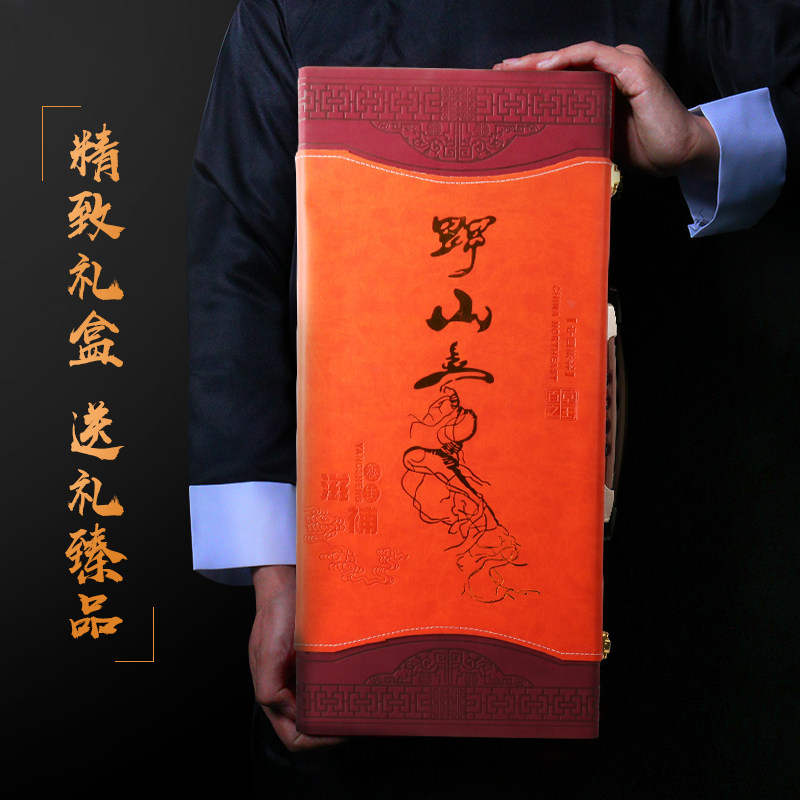 精致礼盒 送礼臻品
野山参
CHINA NORTHEAST
滋补
养生
YANGSHENG